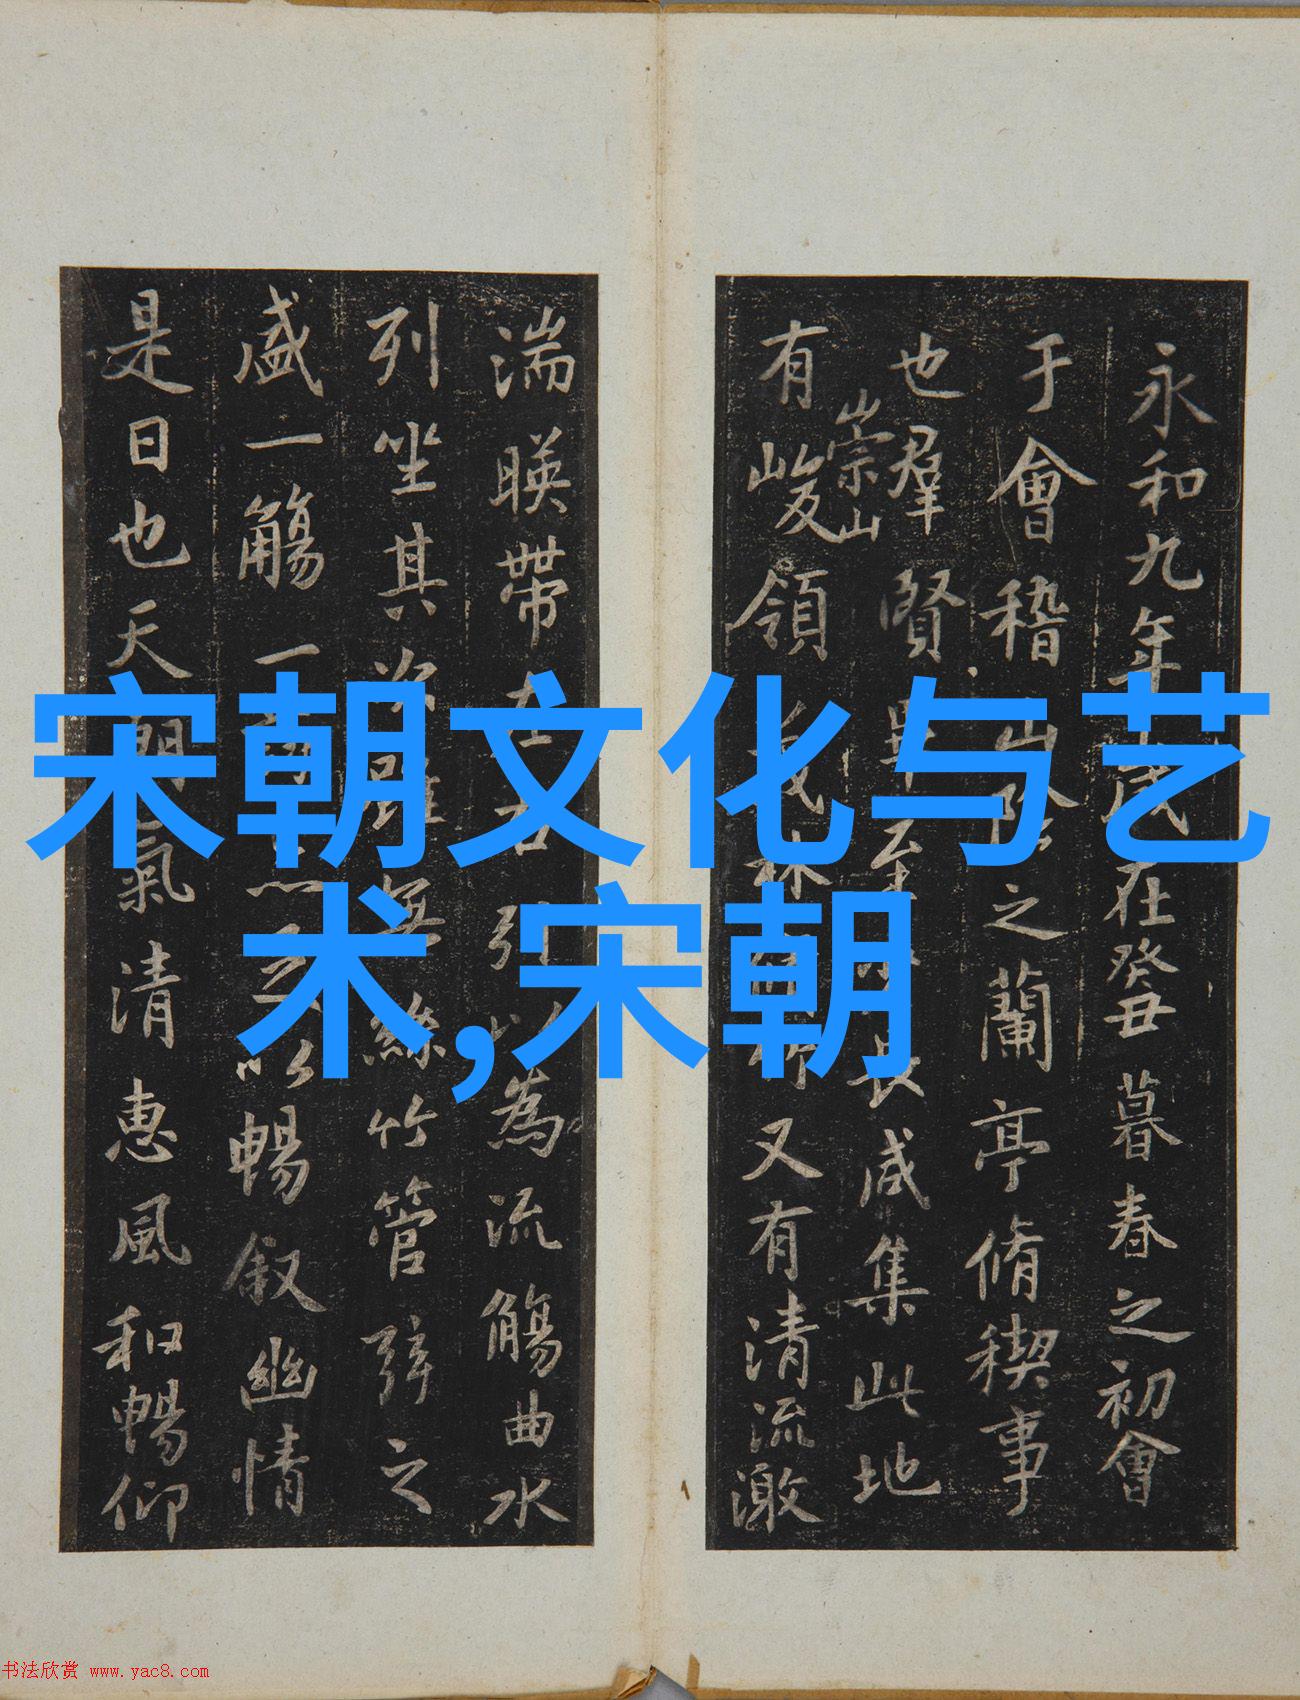 宋朝文化与艺
术,宋朝
永和九年歲在癸丑暮春之初會
于會稽山陰之蘭亭脩稧事
也羣賢畢至長咸集此地
崇山
有峻領茂林又有清流激
湍暎帶左右引以為流觴曲水
列坐其次雖無絲竹管弦之
盛一觴一以暢叙幽情
是日也天朗氣清惠風和暢仰
书法欣赏 www.yac8.com